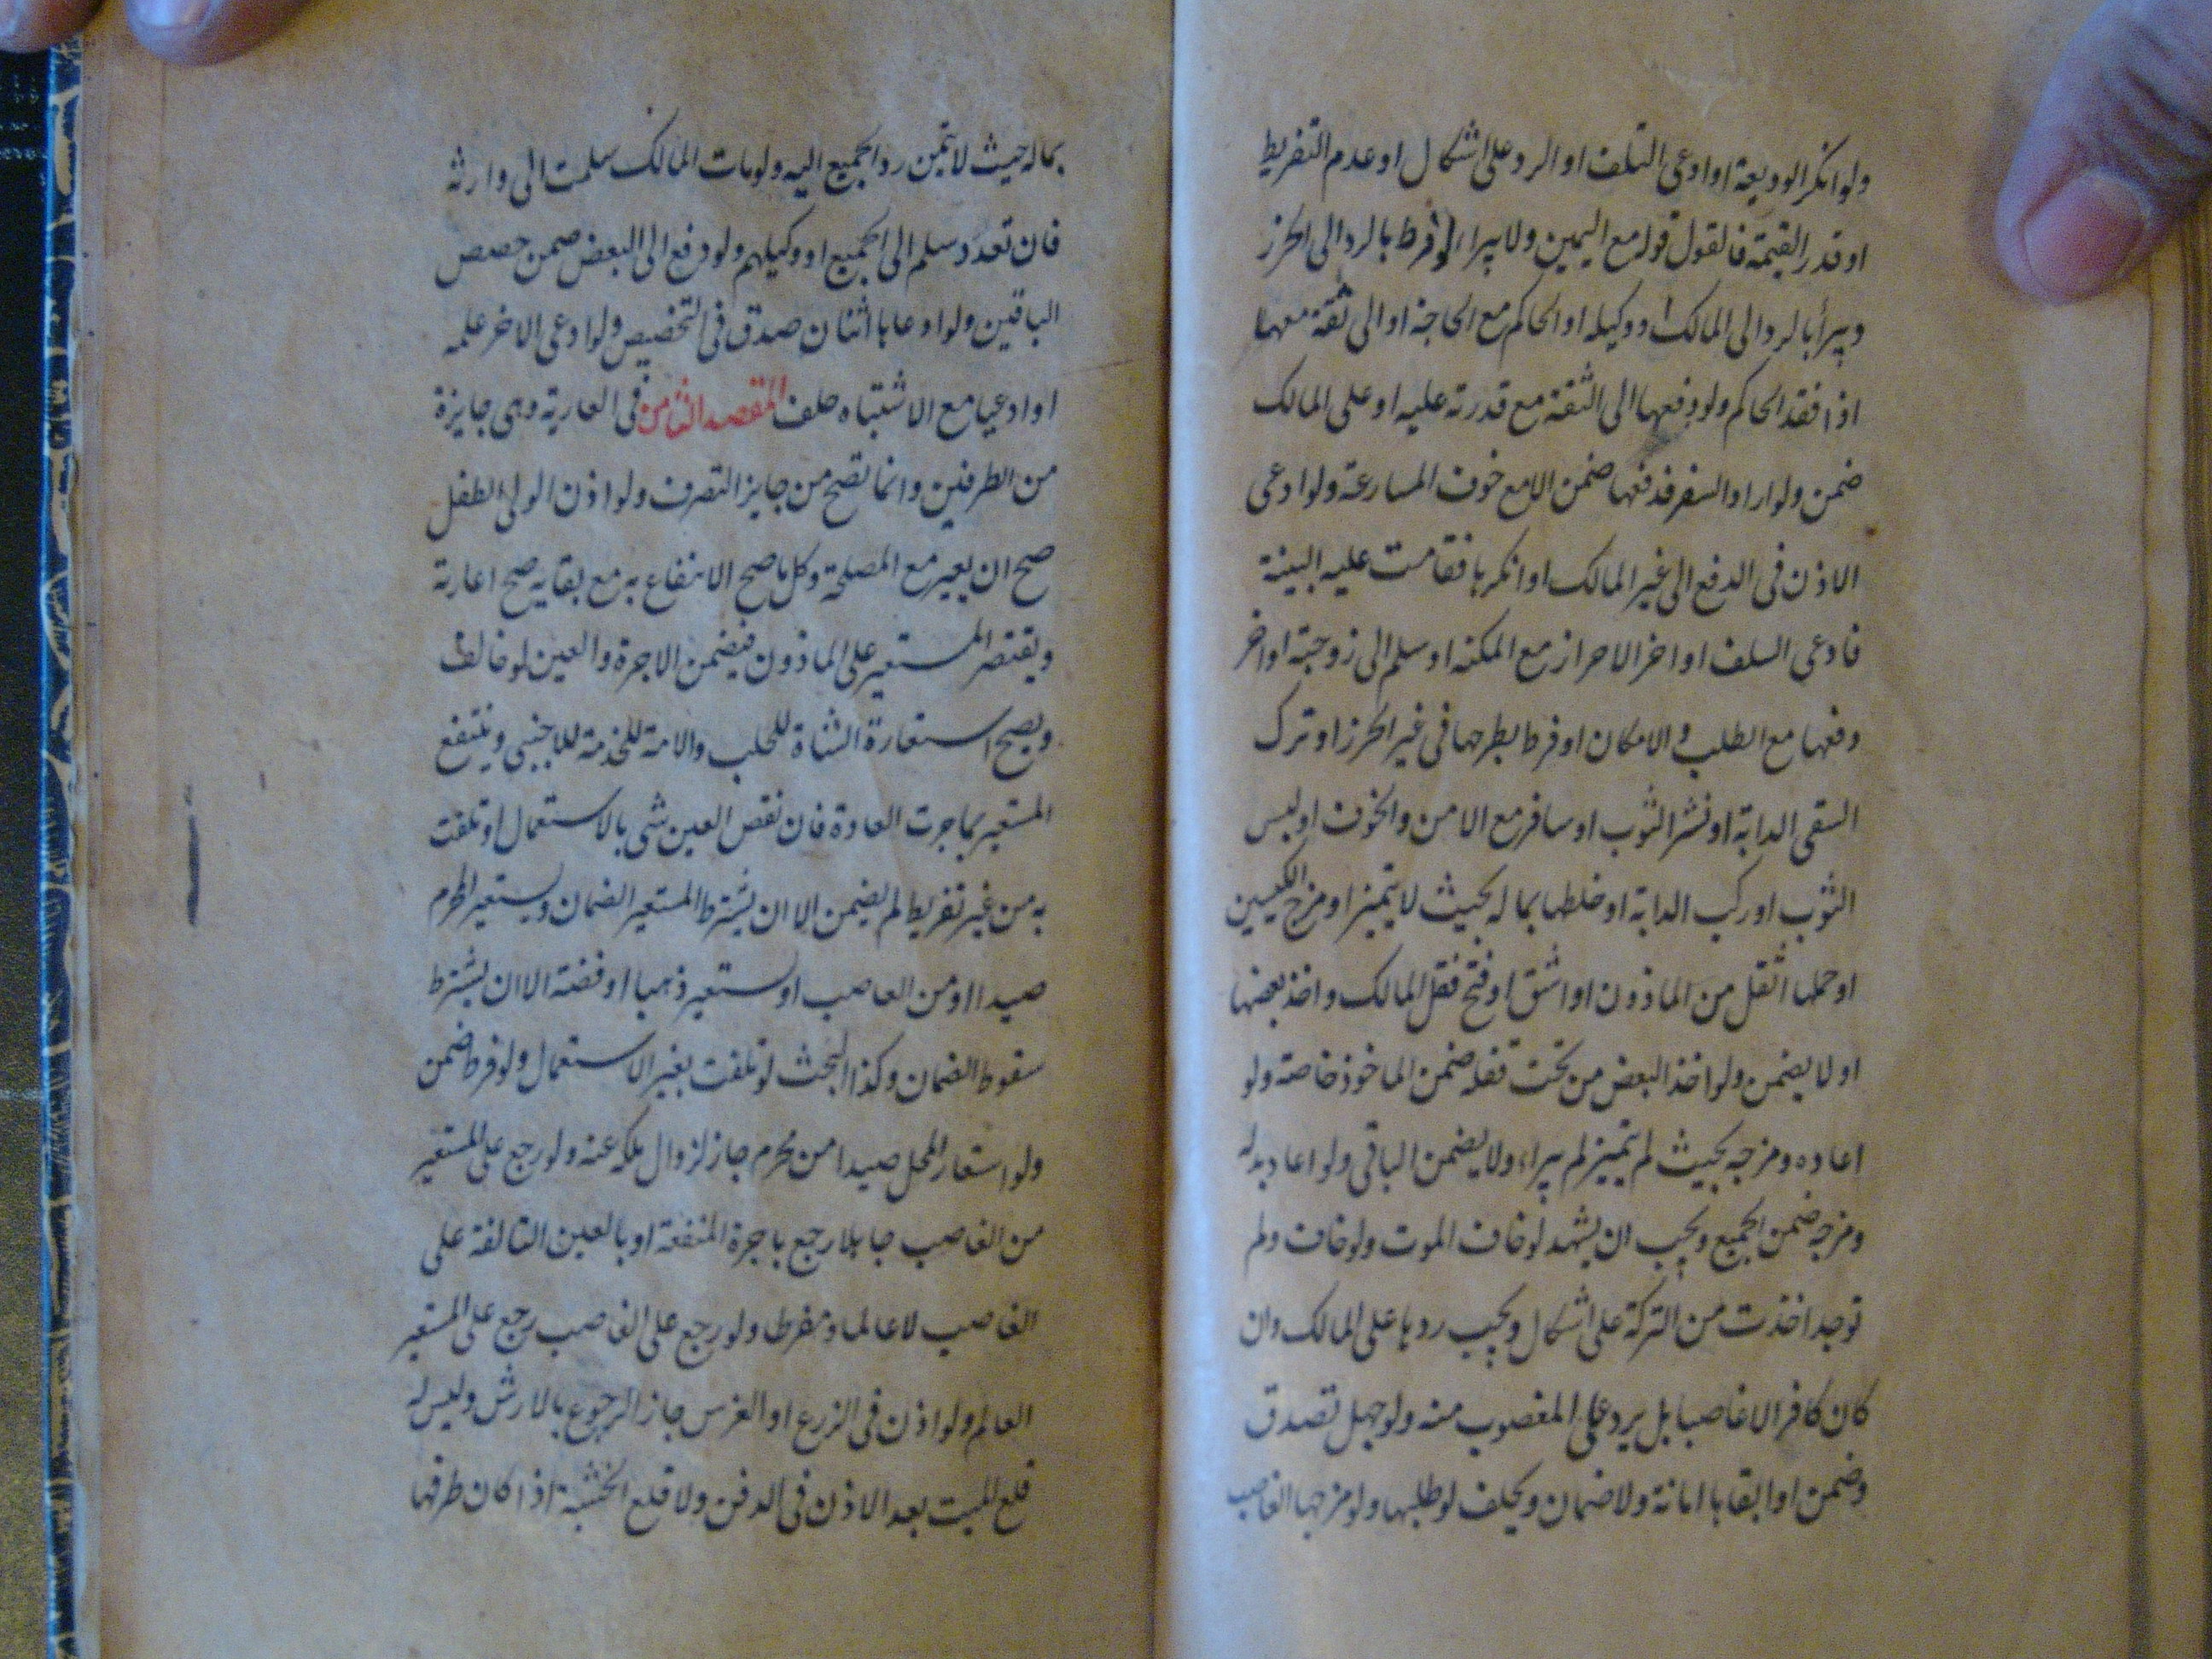 ولو انكر الوديعة او ادعى التلف او الرد على اشكال او عدم التفريط
او قدر القيمة فالقول قوله مع اليمين ولا يبرا لو فرط بالرد الى الحرز
ويبرأ بالرد الى المالك او وكيله او الحاكم مع الحاجة او الى ثقة معها
اذا فقد الحاكم ولو دفعها الى الثقة مع قدرته عليه او على المالك
ضمن ولو اراد السفر فدفنها ضمن الا مع خوف المسارعة ولو ادعى
الاذن فى الدفع الى غير المالك او انكرها فقامت عليه البينة
فادعى السلف او اخر الاحراز مع المكنة او سلم الى زوجته او اخر
دفعها مع الطلب والامكان او فرط بطرحها فى غير الحرز او ترك
السقى الدابة او نشر الثوب او سافر مع الامن والخوف او لبس
الثوب او ركب الدابة او خلطها بماله بحيث لا يتميز او مزج الكيسين
او حملها اثقل من الماذون او اشق او فتح قفل المالك واخذ بعضها
او لا يضمن ولو اخذ البعض من تحت قفله ضمن الماخوذ خاصة ولو
اعاده ومزجه بحيث لم يتميز لم يبراء ولا يضمن الباقى ولو اعاد بدله
ومزجه ضمن الجميع ويجب ان يشهد لو خاف الموت ولو خاف ولم
توجد اخذت من التركة على اشكال ويجب ردها على المالك وان
كان كافرا لا غاصبا بل يرد على المغصوب منه ولو جهل تصدق
وضمن او ابقاها امانة ولا ضمان ويحلف لو طلبها ولو مزجها الغاصب
بماله حيث لا يتميز رد الجميع اليه ولو مات المالك سلمت الى وارثه
فان تعدد سلم الى الجميع او وكيلهم ولو دفع الى البعض ضمن حصص
الباقين ولو ادعاها اثنان صدق فى التخصيص ولو ادعى الاخر علمه
او ادعيا مع الاشتباه حلف المقصد الثامن فى العارية وهى جايزة
من الطرفين وانما تصح من جايز التصرف ولو اذن الولى الطفل
صح ان يعير مع المصلحة وكل ما صح الانتفاع به مع بقايه صح اعارته
ويقتصر المستعير على الماذون فيضمن الاجرة والعين لو خالف
ويصح استعارة الشاة للحلب والامة للخدمة للاجنبى وينتفع
المستعير بما جرت العادة فان نقص العين شى بالاستعمال او تلفت
به من غير تفريط لم يضمن الا ان يشترط المستعير الضمان ويستعير المحرم
صيدا او من الغاصب او يستعير ذهبا او فضة الا ان يشترط
سقوط الضمان وكذا البحث لو تلفت بغير الاستعمال ولو فرط ضمن
ولو استعار المحل صيدا من محرم جاز لزوال ملكه عنه ولو رجع على المستعير
من الغاصب جاهلا رجع باجرة المنفعة او بالعين التالفة على
الغاصب لا عالما ومفرطا ولو رجع على الغاصب رجع على المستعير
العالم ولو اذن فى الزرع او الغرس جاز الرجوع بالارش وليس له
قلع الميت بعد الاذن فى الدفن ولا قلع الخشبة اذا كان طرفها